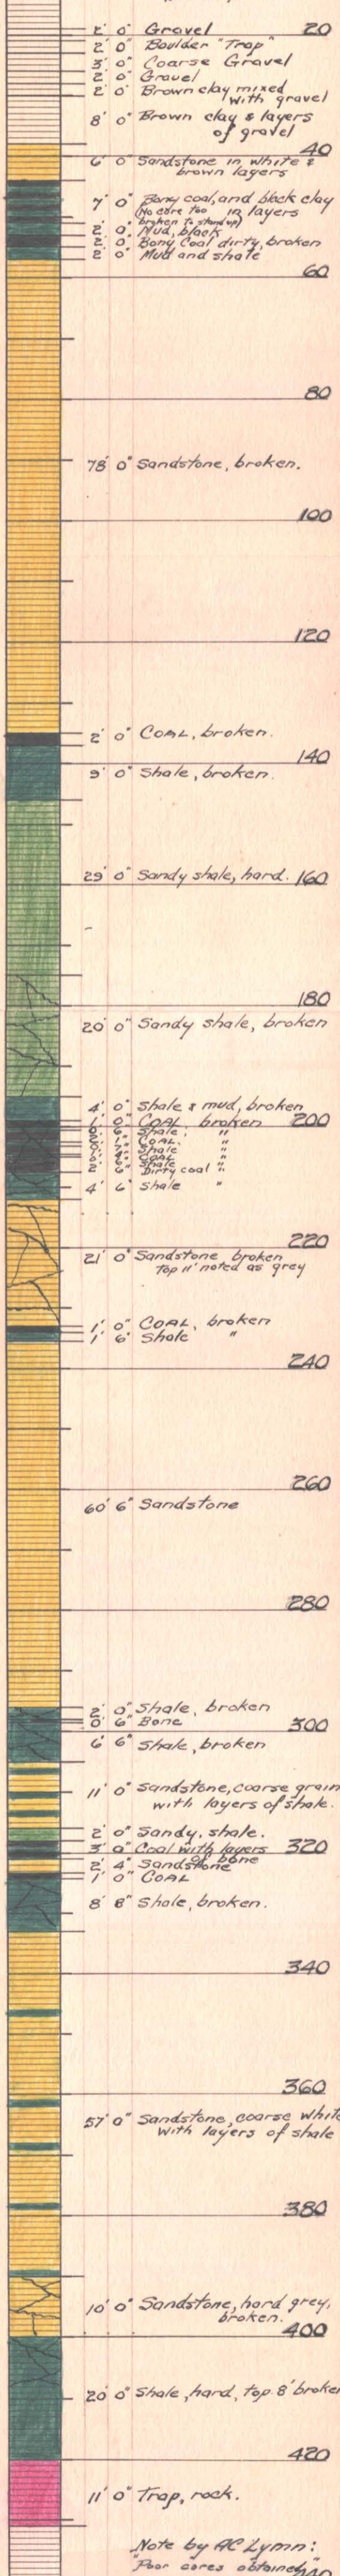 2' 0" Gravel 20
2' 0" Boulder "Trap"
3' 0" Coarse Gravel
2' 0" Gravel
2' 0" Brown clay mixed
with gravel
8' 0" Brown clay & layers
of gravel
40
6' 0" Sandstone in white &
brown layers
7' 0" Bony coal, and black clay
(No core too in layers
broken to stand up)
2' 0" Mud, black
2' 0" Bony Coal dirty, broken
2' 0" Mud and shale
60
80
78' 0" Sandstone, broken.
100
120
2' 0" COAL, broken.
140
9' 0" Shale, broken.
29' 0" Sandy shale, hard. 160
180
20' 0" Sandy shale, broken
4' 0" Shale & mud, broken
1' 0" COAL, broken 200
Shale, "
COAL, "
Shale "
COAL "
Shale "
2' 6" Dirty coal "
4' 6" Shale "
220
21' 0" Sandstone broken
Top 11' noted as grey
1' 0" COAL, broken
1' 6" Shale "
240
260
60' 6" Sandstone
280
2' 0" Shale, broken
0' 6" Bone
300
6' 6" Shale, broken
11' 0" Sandstone, coarse grain
with layers of shale.
2' 0" Sandy, shale.
3' 0" Coal with layers 320
of bone
2' 4" Sandstone
1' 0" COAL
8' 8" Shale, broken.
340
360
57' 0" Sandstone, coarse white
with layers of shale
380
10' 0" Sandstone, hard grey,
broken.
400
20' 0" Shale, hard, top 8' broken
420
11' 0" Trap, rock.
Note by AC Lymn:
"Poor cores obtained"